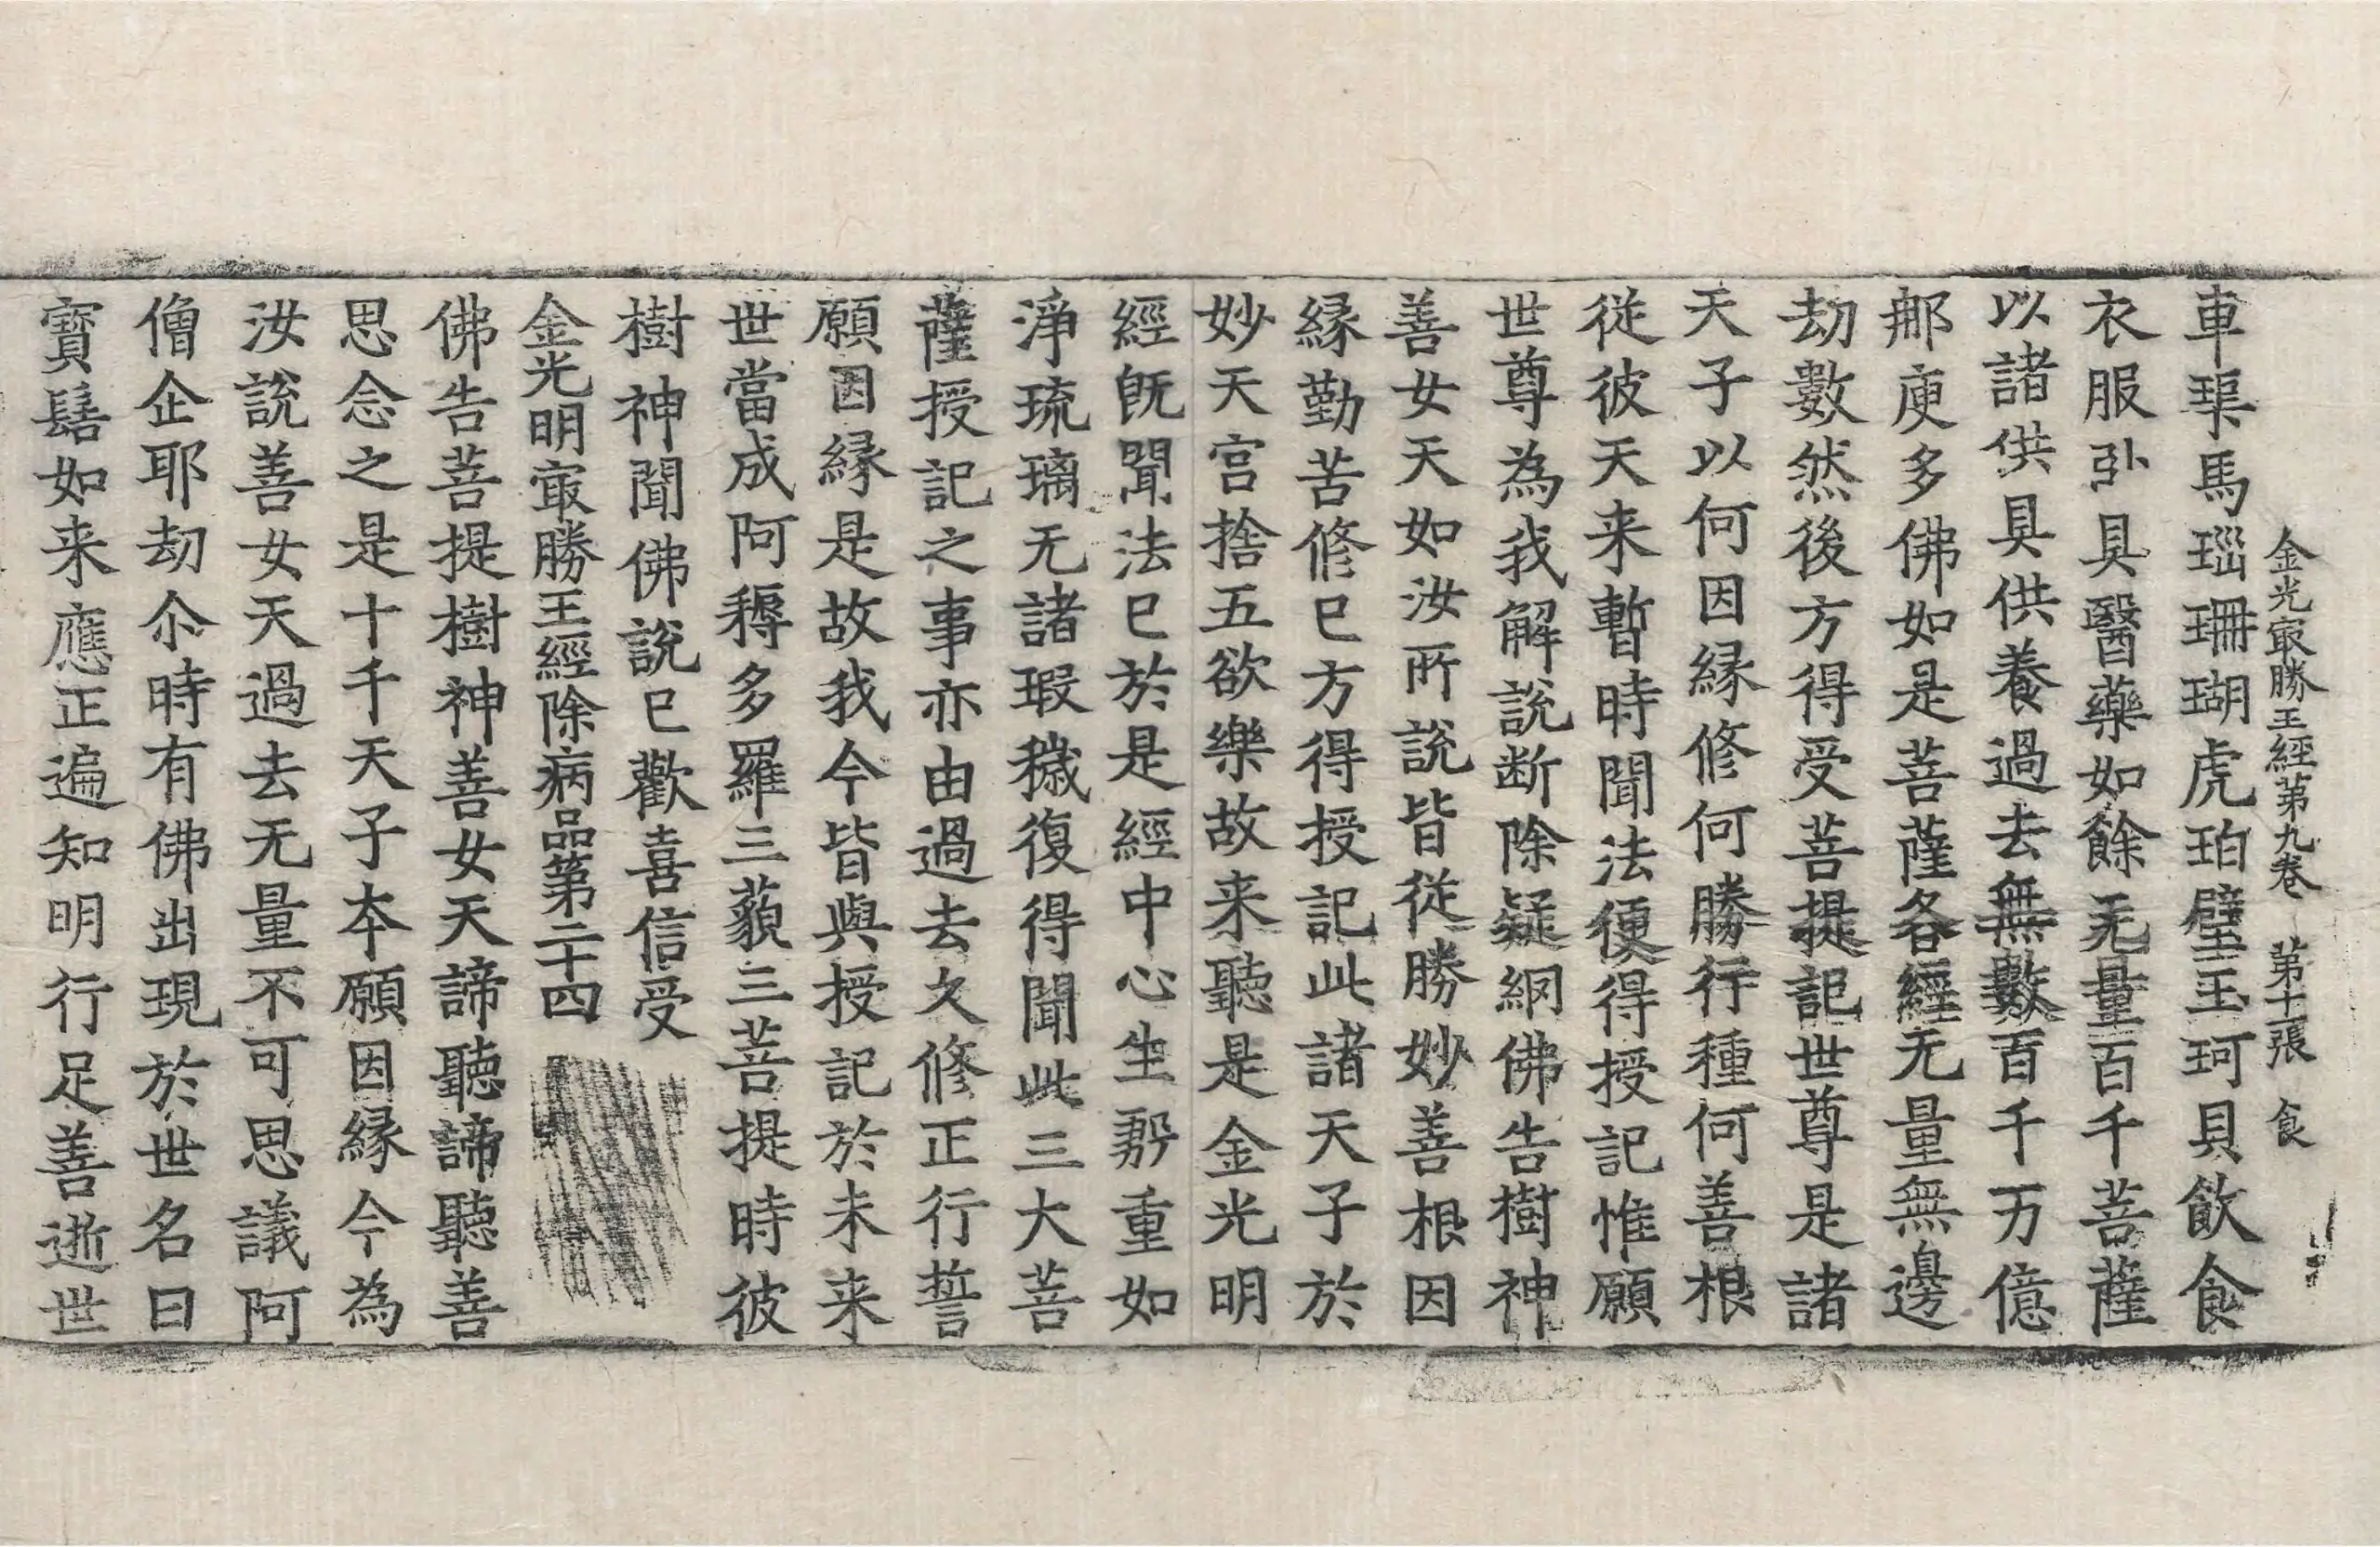 金光㝡勝王經第九卷　第十一張　食
車璖馬瑙珊瑚虎珀璧玉珂貝飲食
衣服卧具醫藥如餘无量百千菩薩
以諸供具供養過去無數百千万億
𨙻庾多佛如是菩薩各經无量無邊
劫數然後方得受菩提記世尊是諸
天子以何因縁修何勝行種何善根
従彼天来暫時聞法便得授記惟願
世尊為我解説断除疑網佛告樹神
善女天如汝所説皆従勝妙善根因
縁勤苦修已方得授記此諸天子於
妙天宫捨五欲樂故来聽是金光明
經既聞法已於是經中心生殷重如
淨琉璃无諸瑕穢復得聞此三大菩
薩授記之事亦由過去久修正行誓
願因縁是故我今皆與授記於未来
世當成阿耨多羅三藐三菩提時彼
樹神聞佛説已歡喜信受
金光明㝡勝王經除病品第二十四
佛告菩提樹神善女天諦聽諦聽善
思念之是十千天子本願因縁今為
汝説善女天過去无量不可思議阿
僧企耶劫尒時有佛出現於世名曰
寳髻如来應正遍知明行足善逝世